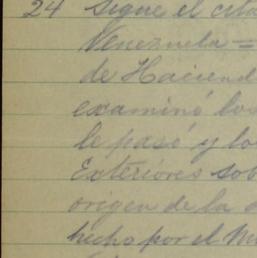 24 Sigue el cita
Venezuela =
de Haciend
examinó los
le pasó y lo
Exteriores sob
origen de la d
hecho por el Mi